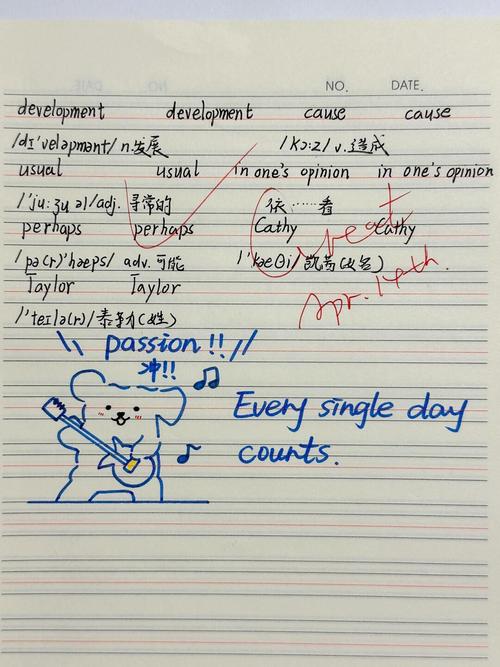 NO. DATE.
development development cause cause
/dɪˈveləpmənt/ n.发展 /kɔ:z/ v.造成
usual usual in one's opinion in one's opinion
/ˈju:ʒuəl/adj. 寻常的 依……看
perhaps perhaps Cathy Cathy
/pə(r)ˈhæps/ adv.可能 /ˈkæθi/ 凯茜(女名)
Great
Taylor Taylor
Apr. 14th.
/ˈteɪlə(r)/泰勒(姓)
\\ passion!! //
冲!!
Every single day
counts.